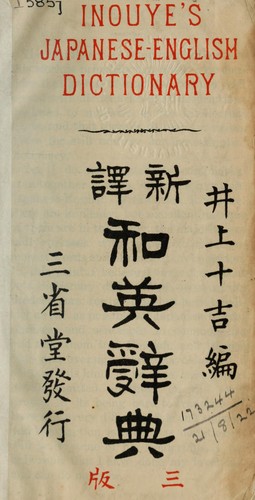 15857
INOUYE'S
JAPANESE-ENGLISH
DICTIONARY
井上十吉編
新譯
和英辭典
三省堂發行
三版
193244
21/8/22